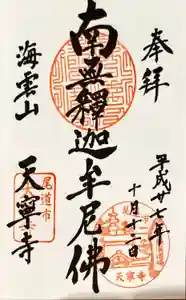 奉拝
平成廿七年
十月十二日
南無釋迦牟尼佛
海雲山
天寧寺
尾道市
天寧寺